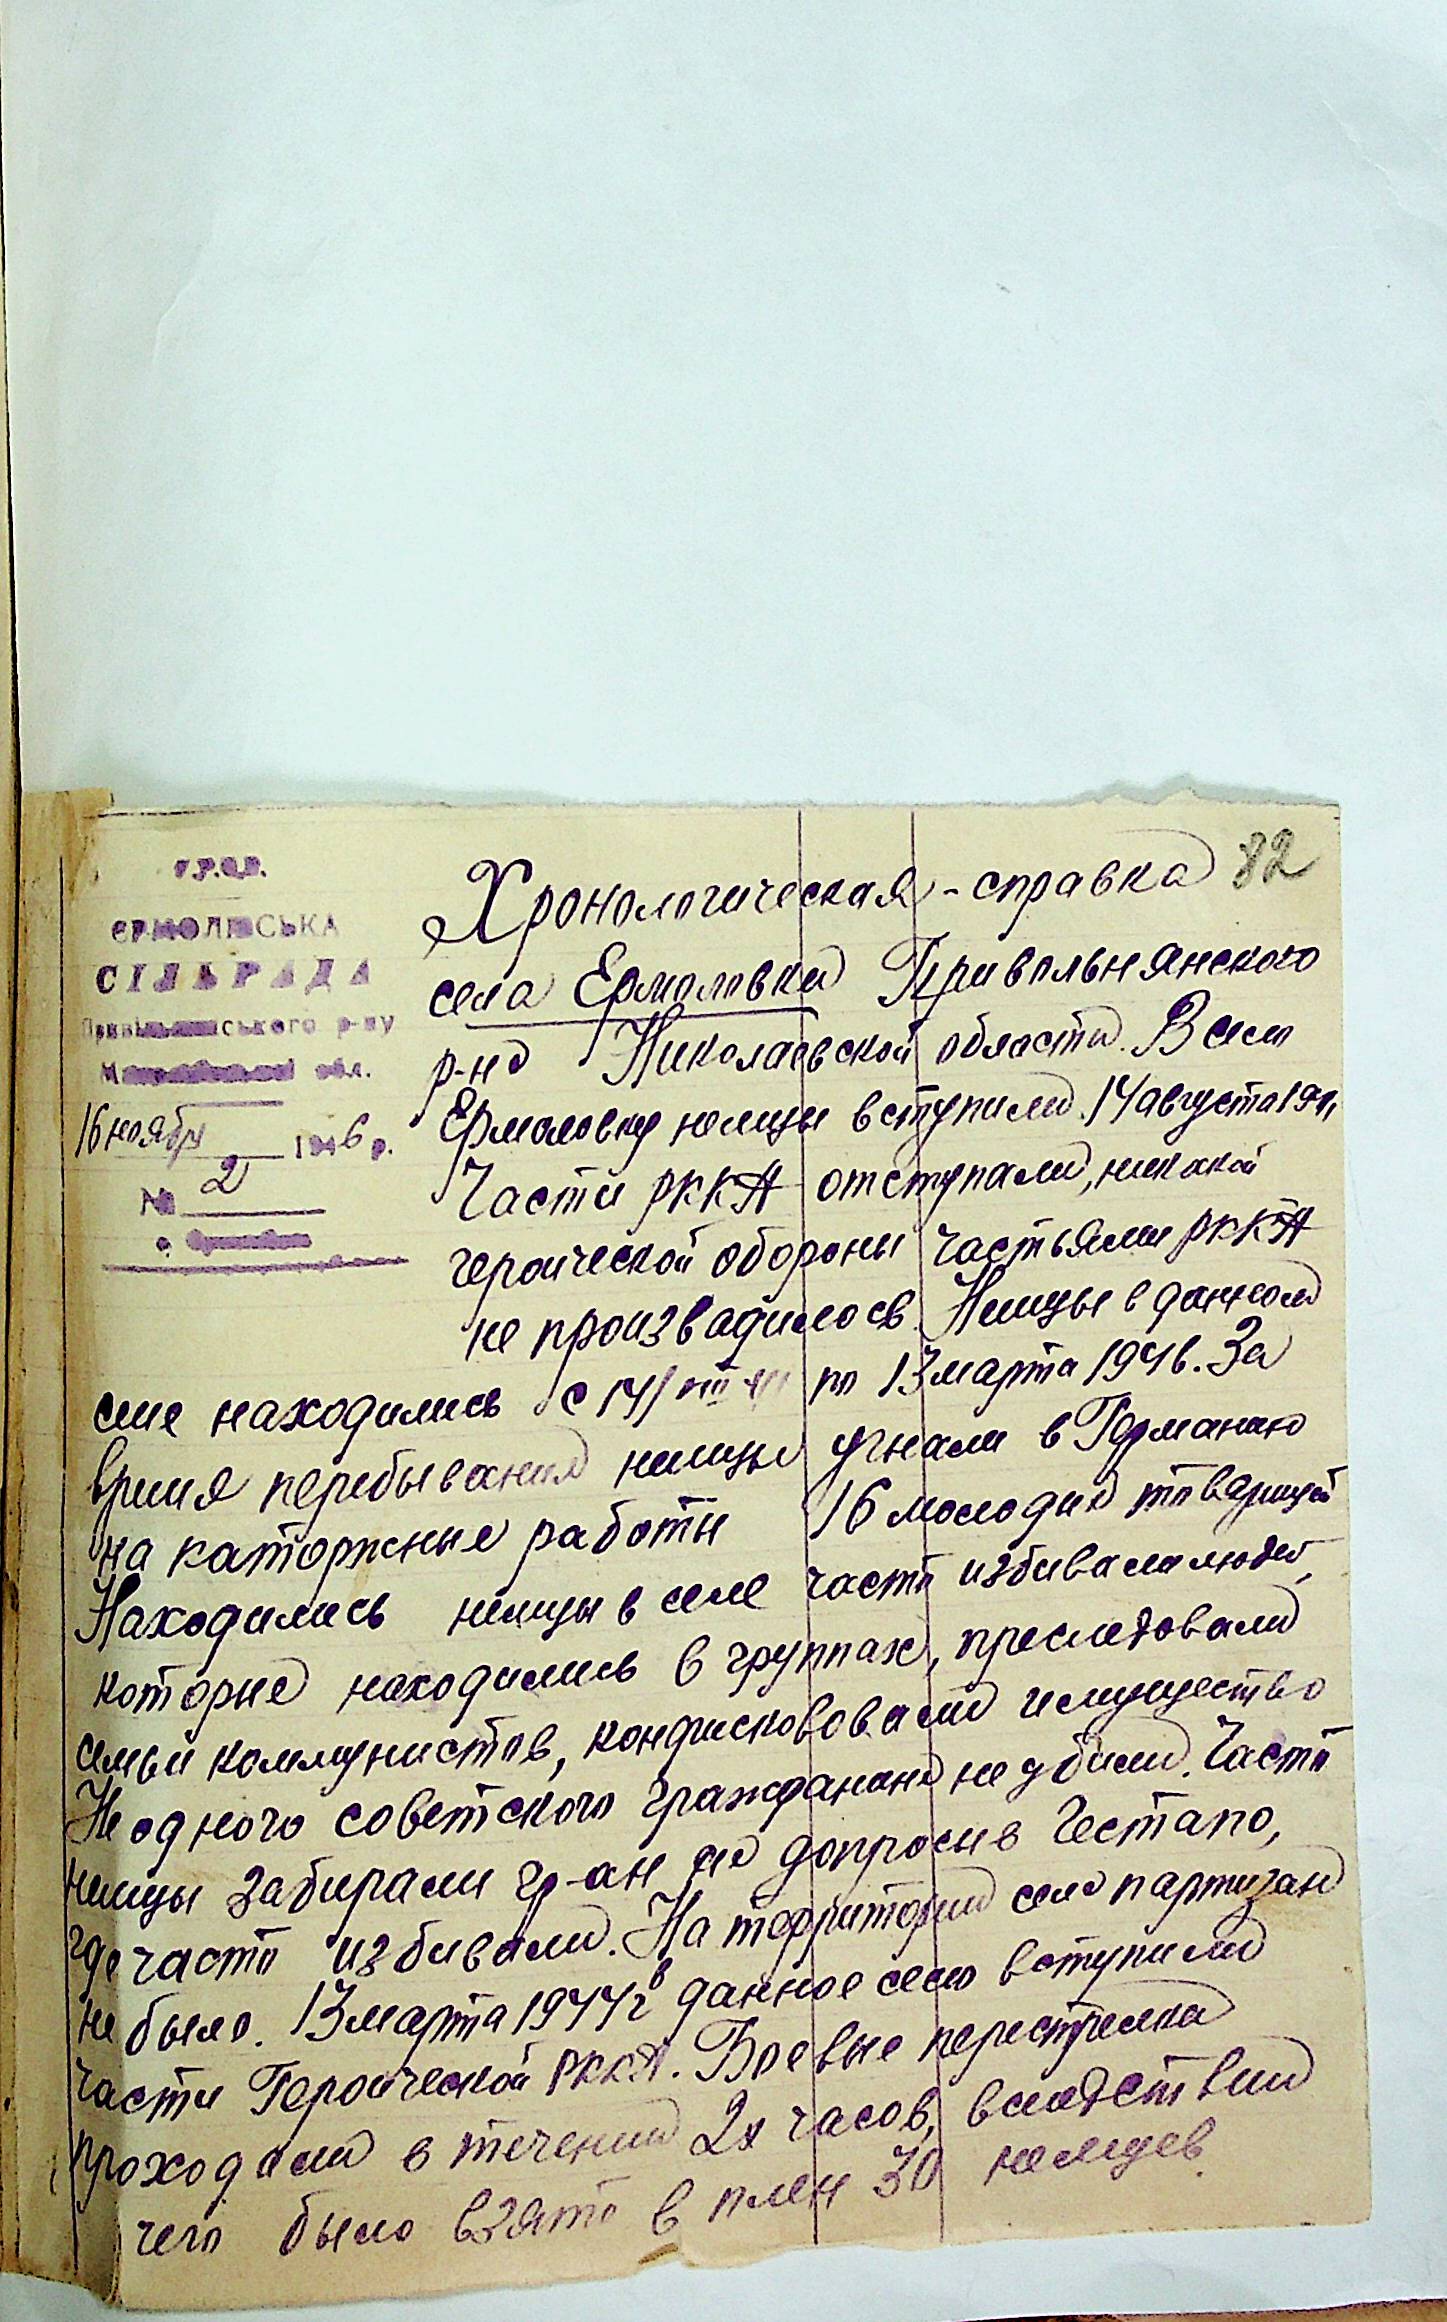 82
У.Р.С.Р.
ЄРМОЛІВСЬКА
СІЛЬРАДА
Привільнянського р-ну
Миколаївської обл.
16 ноября 1946 р.
№ 2
с.
Хронологическая - справка
села Ермоловки Привольнянского
р-на Николаевской области. В село
Ермоловку немцы вступили 14 августа 1941,
Части РККА отступали, никакой
героической обороны частьями РККА
не производилось. Немцы в данном
селе находились с 14/VIII 41 по 13 марта 194в. За
время перебывания немцы угнали в Германию
на каторжные работы 16 молодых товарищей
Находились немцы в селе часто избивали людей,
которые находились в группах, преследовали
семьи коммунистов, конфискововали имущество
Не одного советского гражданина не убили. Часто
немцы забирали гр-ан на допросы в Гестапо,
где часто избивали. На территории села партизан
не было. 13 марта 1944 г в данное село вступили
части Героической РККА. Боевые перестрелка
проходили в течении 2х часов, вследствии
чего было взято в плен 30 немцев